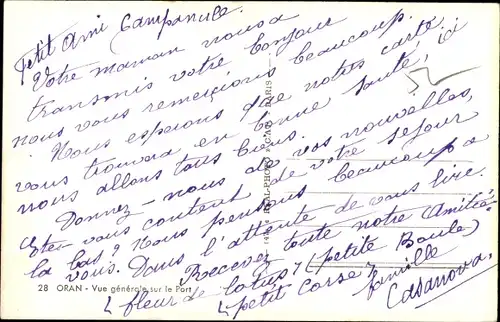 Petit Ami Campanule.
Votre maman nous a
transmis votre bonjour
nous vous remercions beaucoup.
Nous espérons que notre carte
vous trouvera en bonne santé, ici
nous allons tous bien.
Donnez-nous de vos nouvelles,
Etes vous content de votre séjour
la bas? Nous pensons beaucoup a
vous. Dans l'attente de vous lire.
Recevez toute notre Amitié
(fleur de lotus) (petite Boule)
(petit corse) famille
Casanova.
28 ORAN - Vue générale sur le Port
PARIS